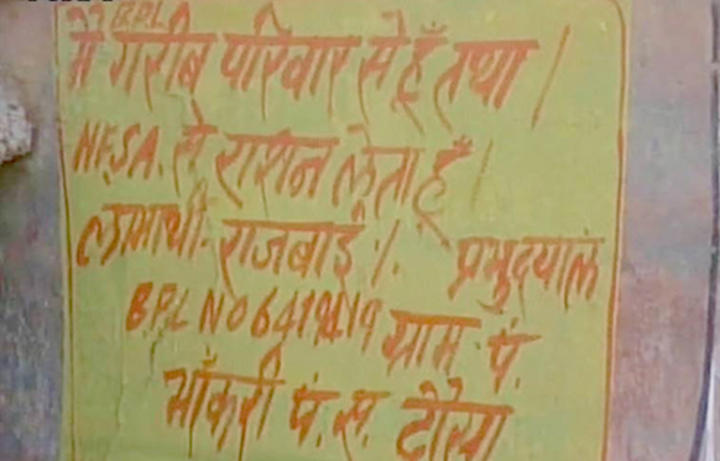 BPL
मे गरीब परिवार से हूँ तथा।
N.F.S.A. से राशन लेता हूँ।
लाभार्थी- राजबाई।. प्रभुदयाल
B.P.L NO 6419419 ग्राम. पं.
भाँकरी पं. स. दौसा